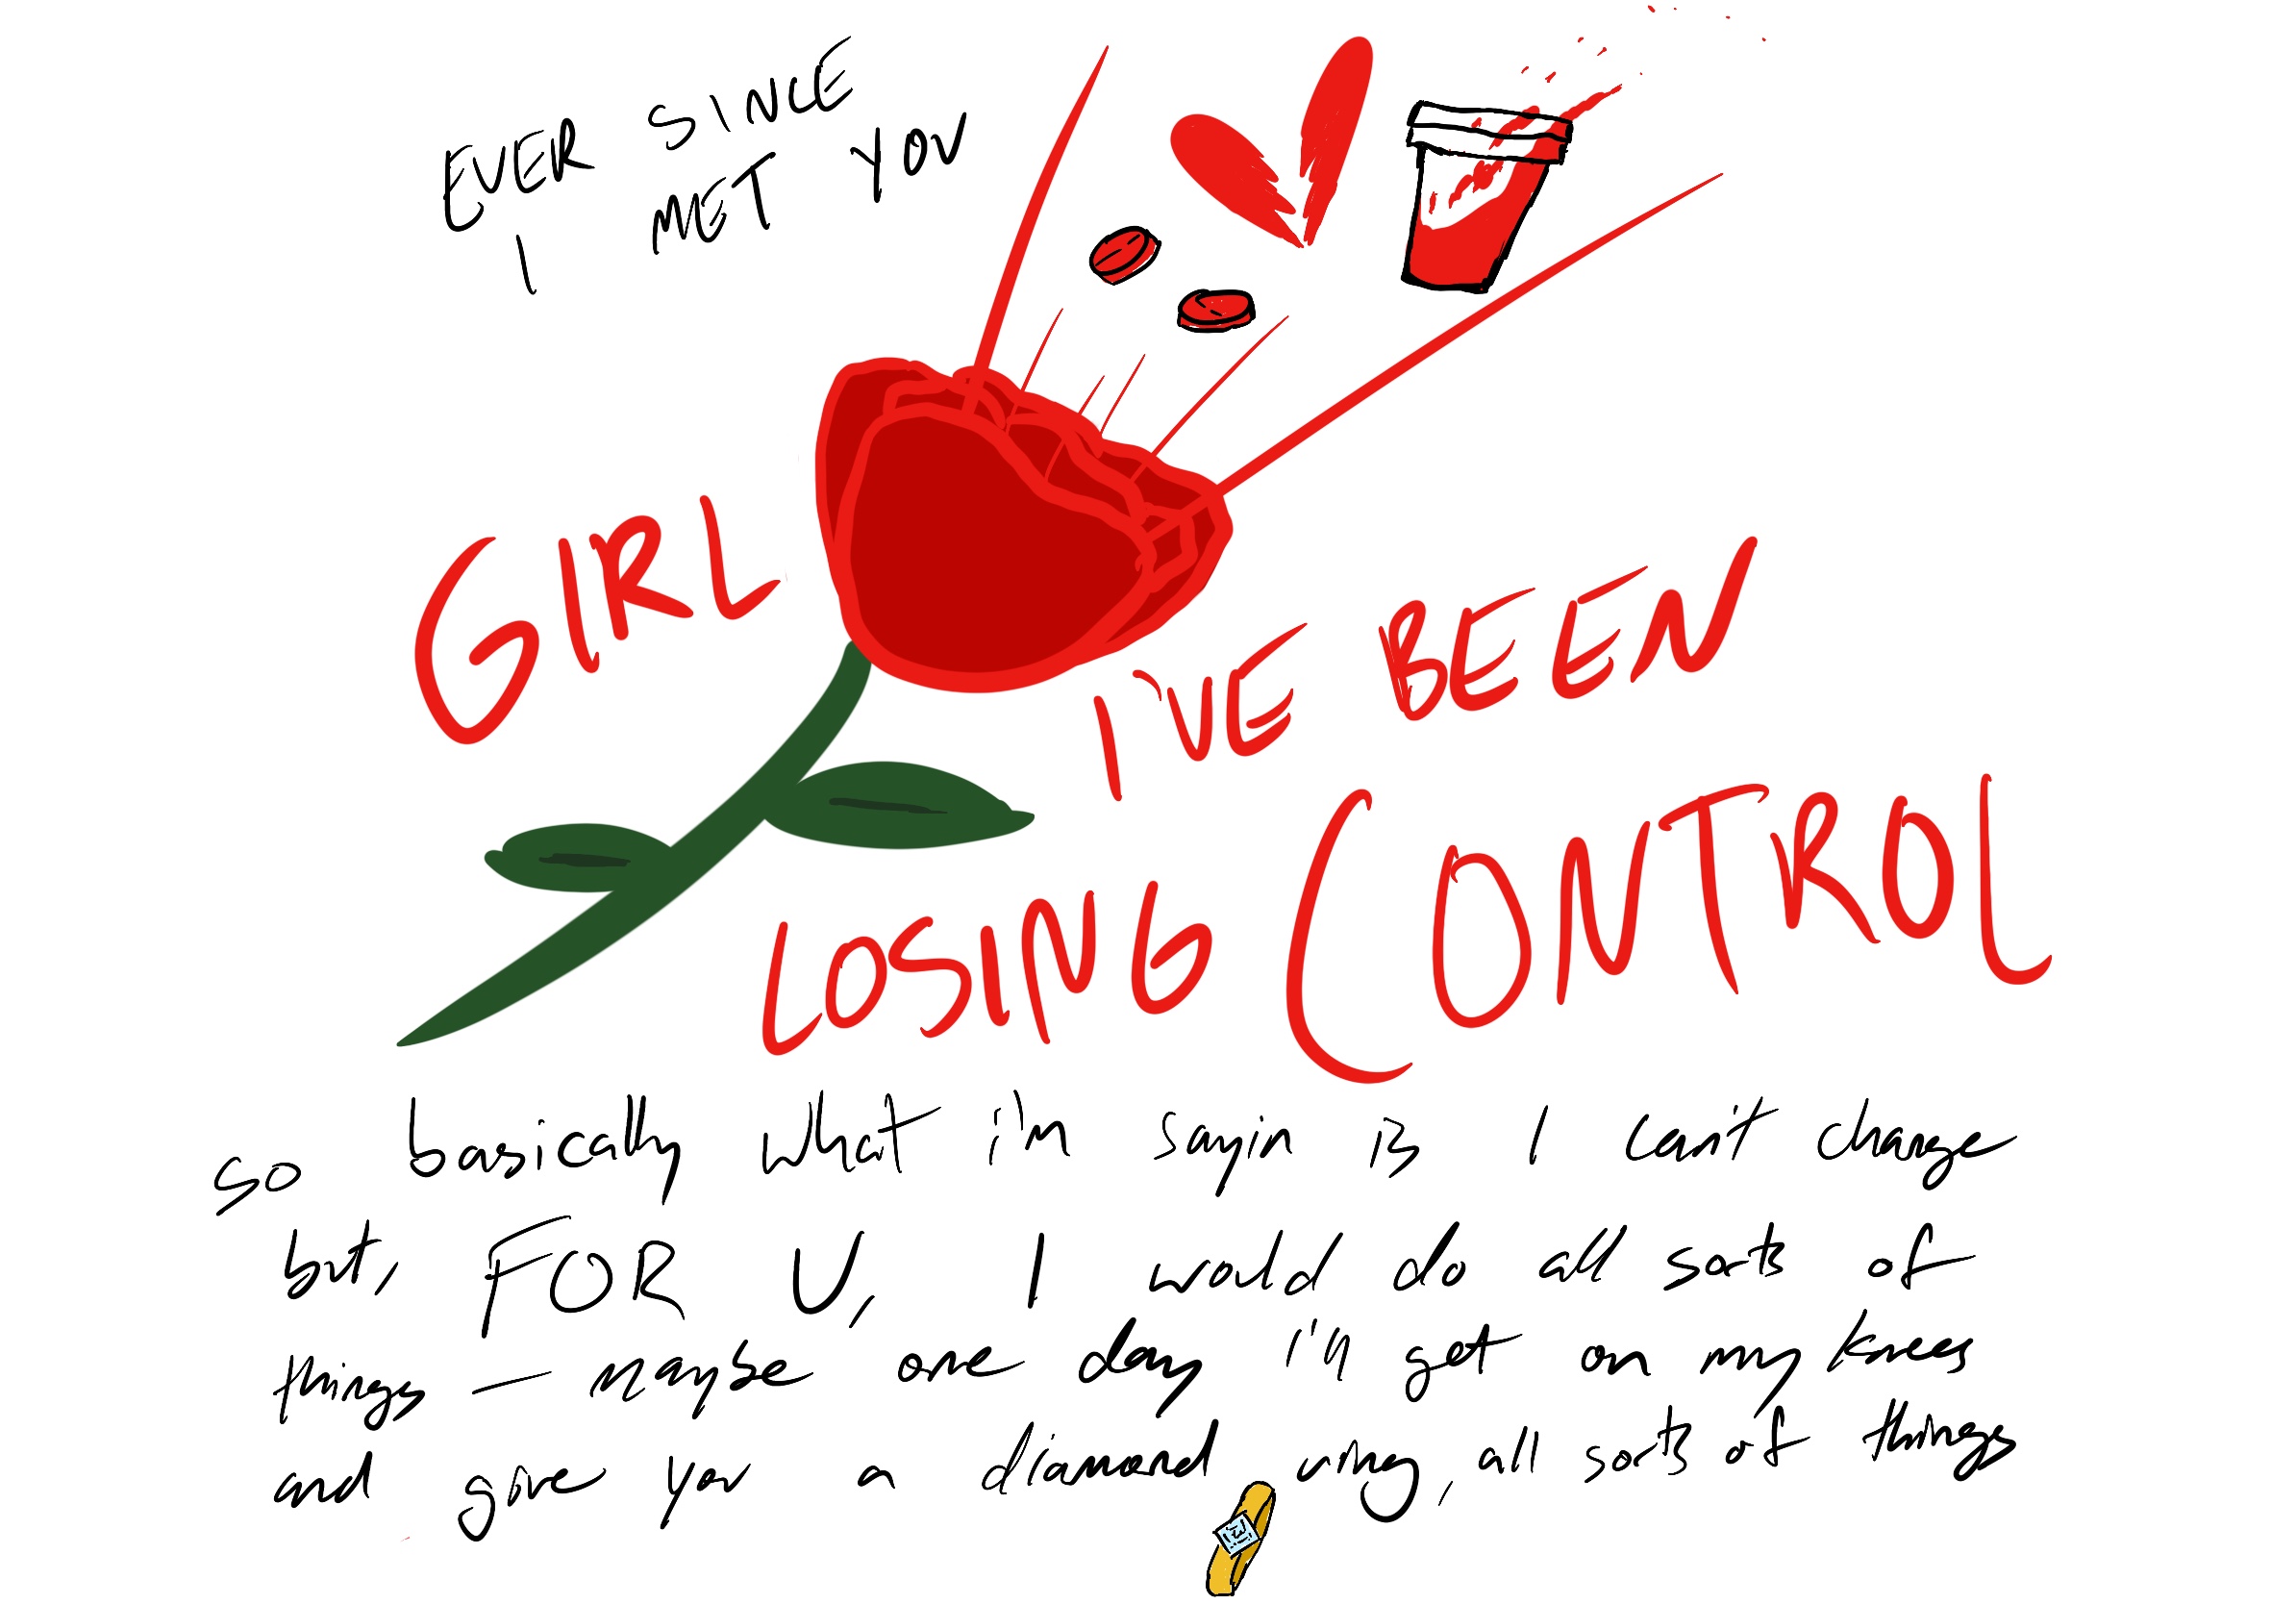 EVER SINCE
I MET YOU
GIRL
I'VE BEEN
LOSING CONTROL
so basically what i'm sayin is I can't change
but, FOR U, I would do all sorts of
things — maybe one day i'll get on my knees
and give you a diamond ring, all sorts of things